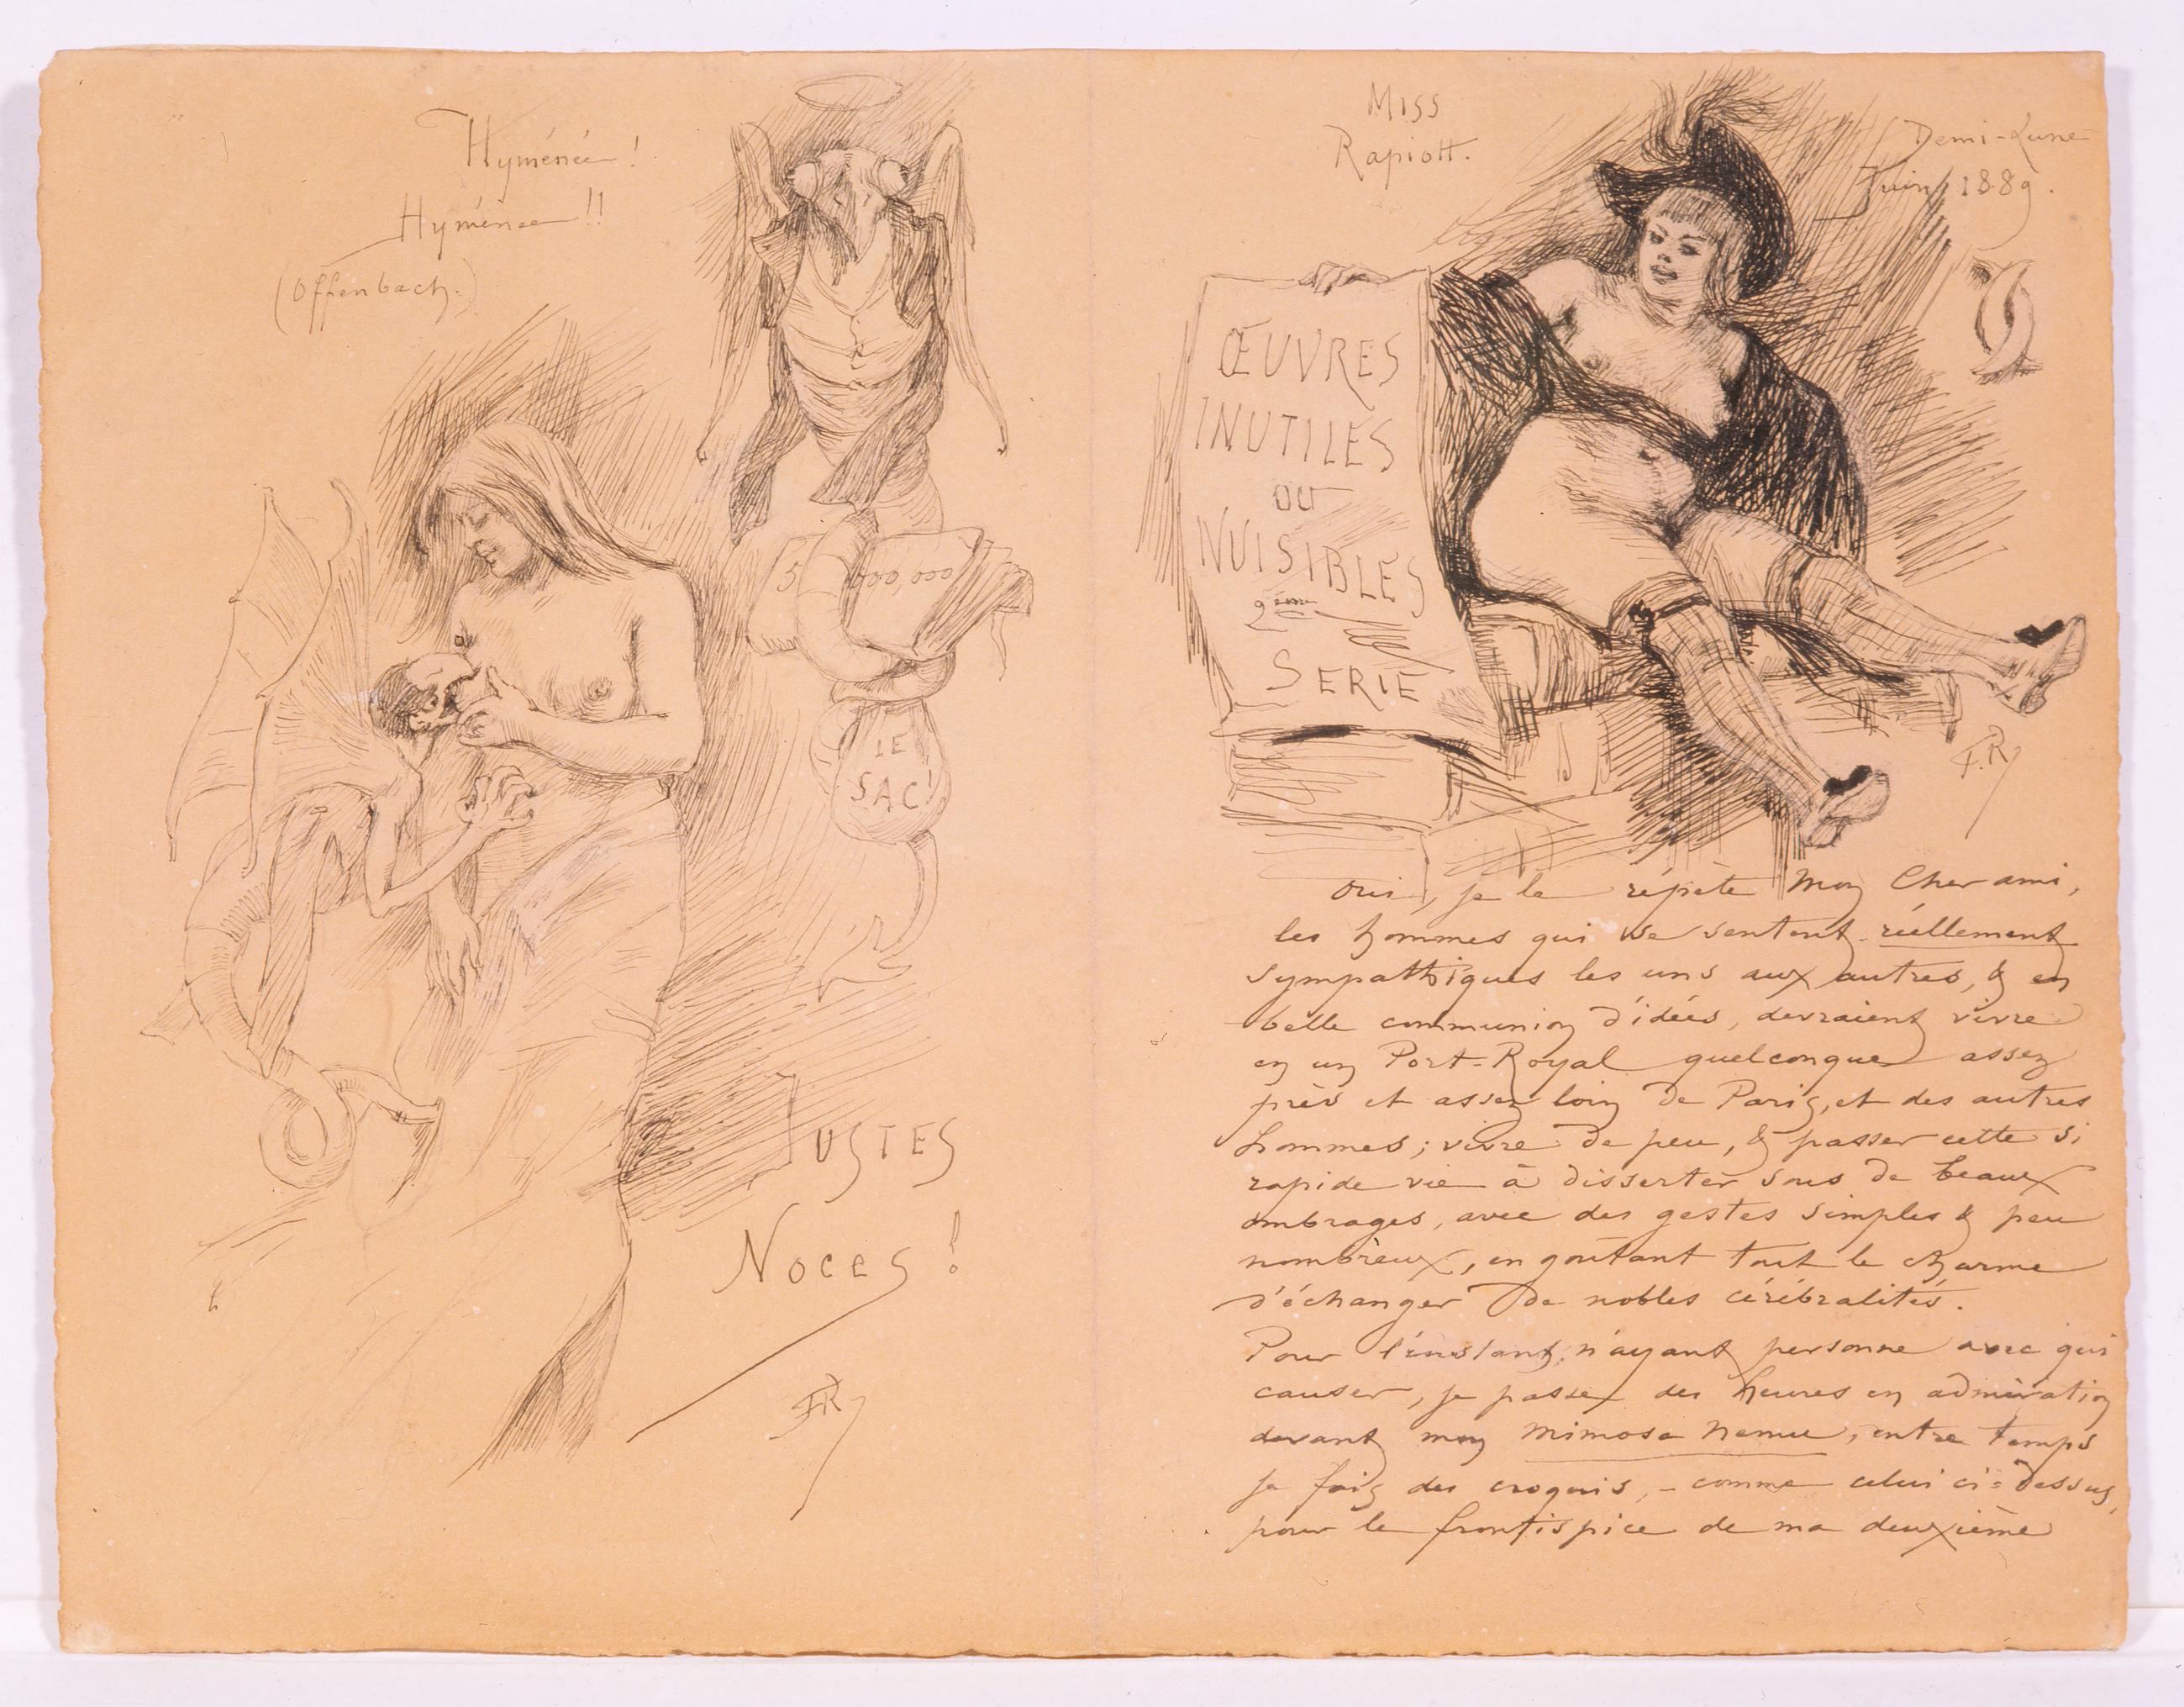 Hyménée !
Hyménée !!
(Offenbach.)
5 000,000
LE
SAC!
JUSTES
NOCES !
FR
Miss
Rapiott.
Demi-Lune
Juin 1889.
ŒUVRES
INUTILES
OU
NUISIBLES
2ème
SERIE
F.R
Oui, je le répète mon cher ami,
les hommes qui se sentent réellement
sympathiques les uns aux autres, & en
belle communion d'idées, devraient vivre
en un Port-Royal quelconque assez
près et assez loin de Paris, et des autres
hommes ; vivre de peu, & passer cette si
rapide vie à disserter sous de beaux
ombrages, avec des gestes simples & peu
nombreux, en goûtant tout le charme
d'échanger de nobles cérébralités.
Pour l'instant, n'ayant personne avec qui
causer, je passe des heures en admiration
devant mon mimosa nemu, entre temps
je fais des croquis, - comme celui ci=dessus,
pour le frontispice de ma deuxième